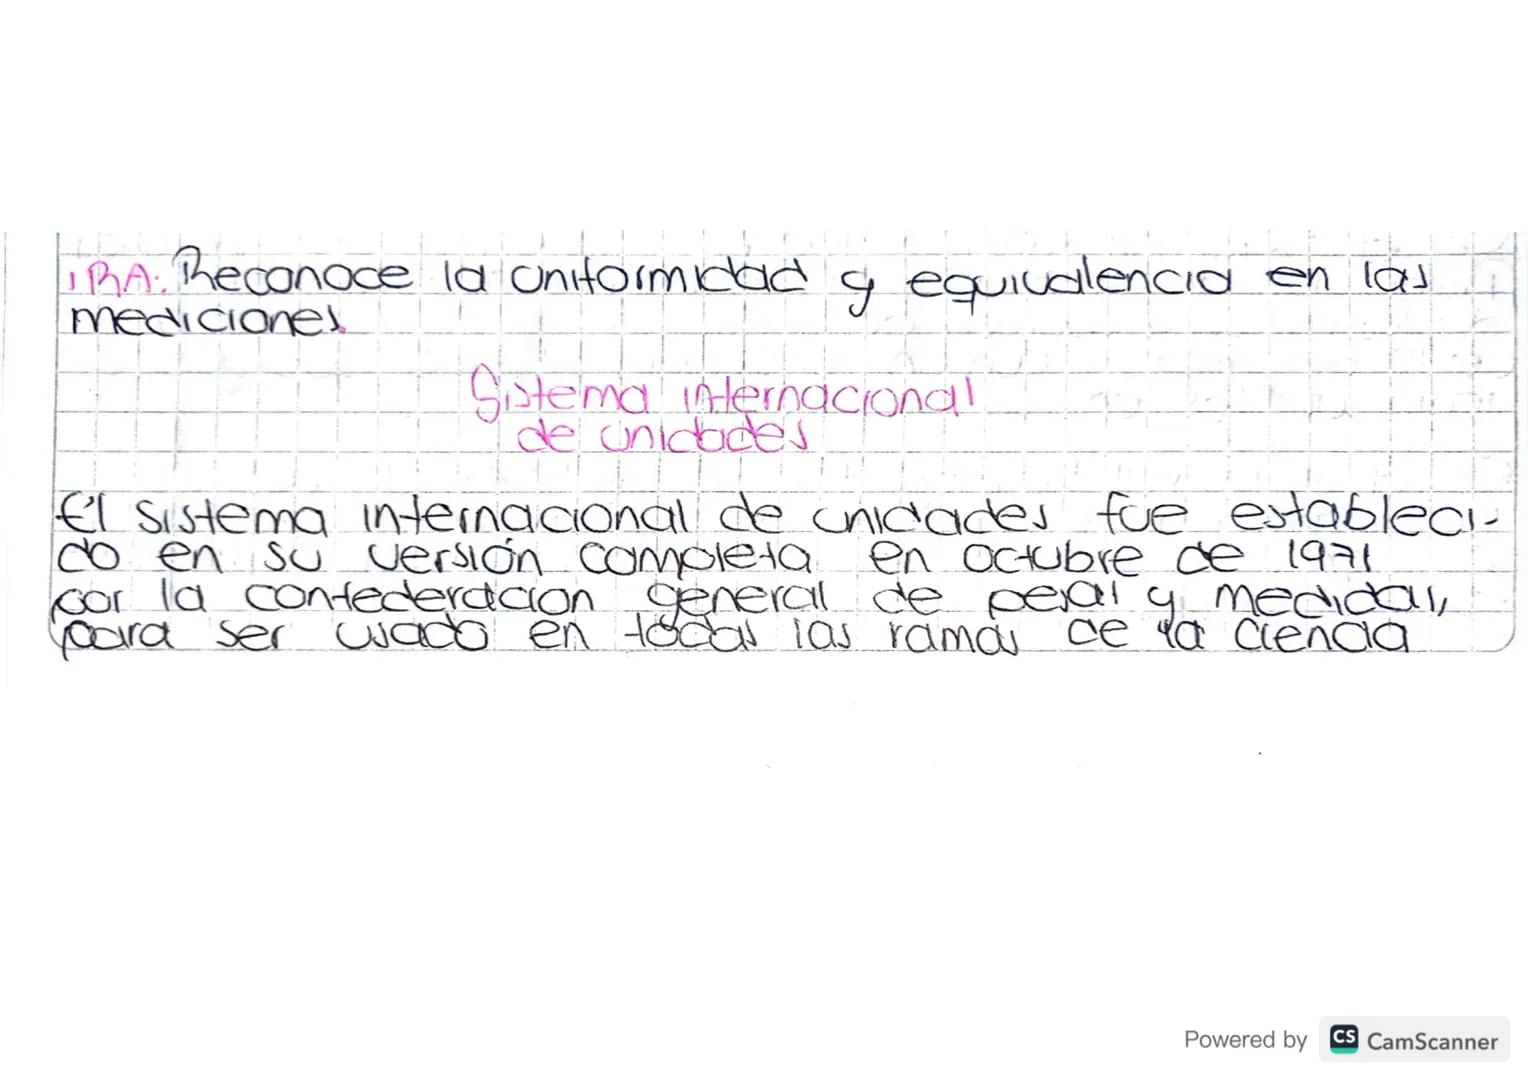 1RA: Reconoce la uniformidad y equivalencia en las
mediciones.
Sistema internacional
de unidades
El sistema internacional de unidades fue estableci-
do en su versión completa en octubre de 1971
por la confederacion general de pesas y medidas,
para ser usado en todas las ramas de la ciencia
Powered by CS CamScanner